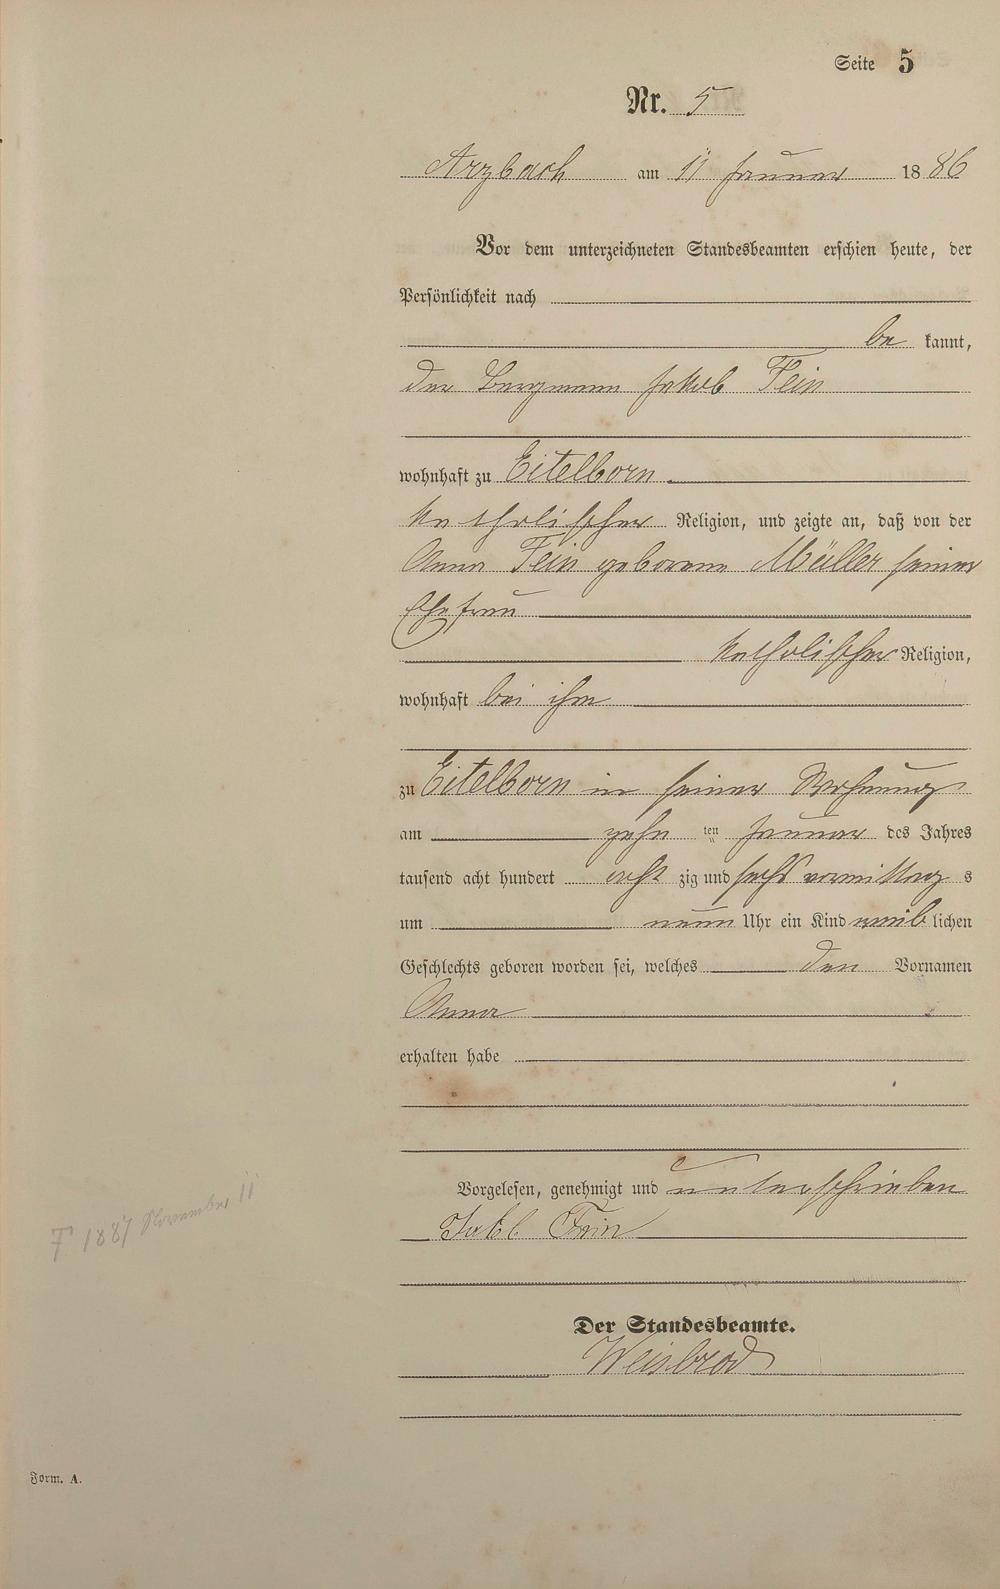 Seite 5
Nr. 5
Arzbach am 11 Januar 1886
Vor dem unterzeichneten Standesbeamten erschien heute, der
Persönlichkeit nach
be kannt,
der Bergmann Jakob Fein
wohnhaft zu Eitelborn
katholischer Religion, und zeigte an, daß von der
Anna Fein geborene Müller seiner
Ehefrau
katholischer Religion,
wohnhaft bei ihm
zu Eitelborn in seiner Wohnung
am zehn ten Januar des Jahres
tausend acht hundert acht zig und sechs vormittag s
um neun Uhr ein Kind weib lichen
Geschlechts geboren worden sei, welches den Vornamen
Anna
erhalten habe
Vorgelesen, genehmigt und unterschrieben
Jakob Fein
Der Standesbeamte.
Weisbrod
† 1887 November 11
Form. A.